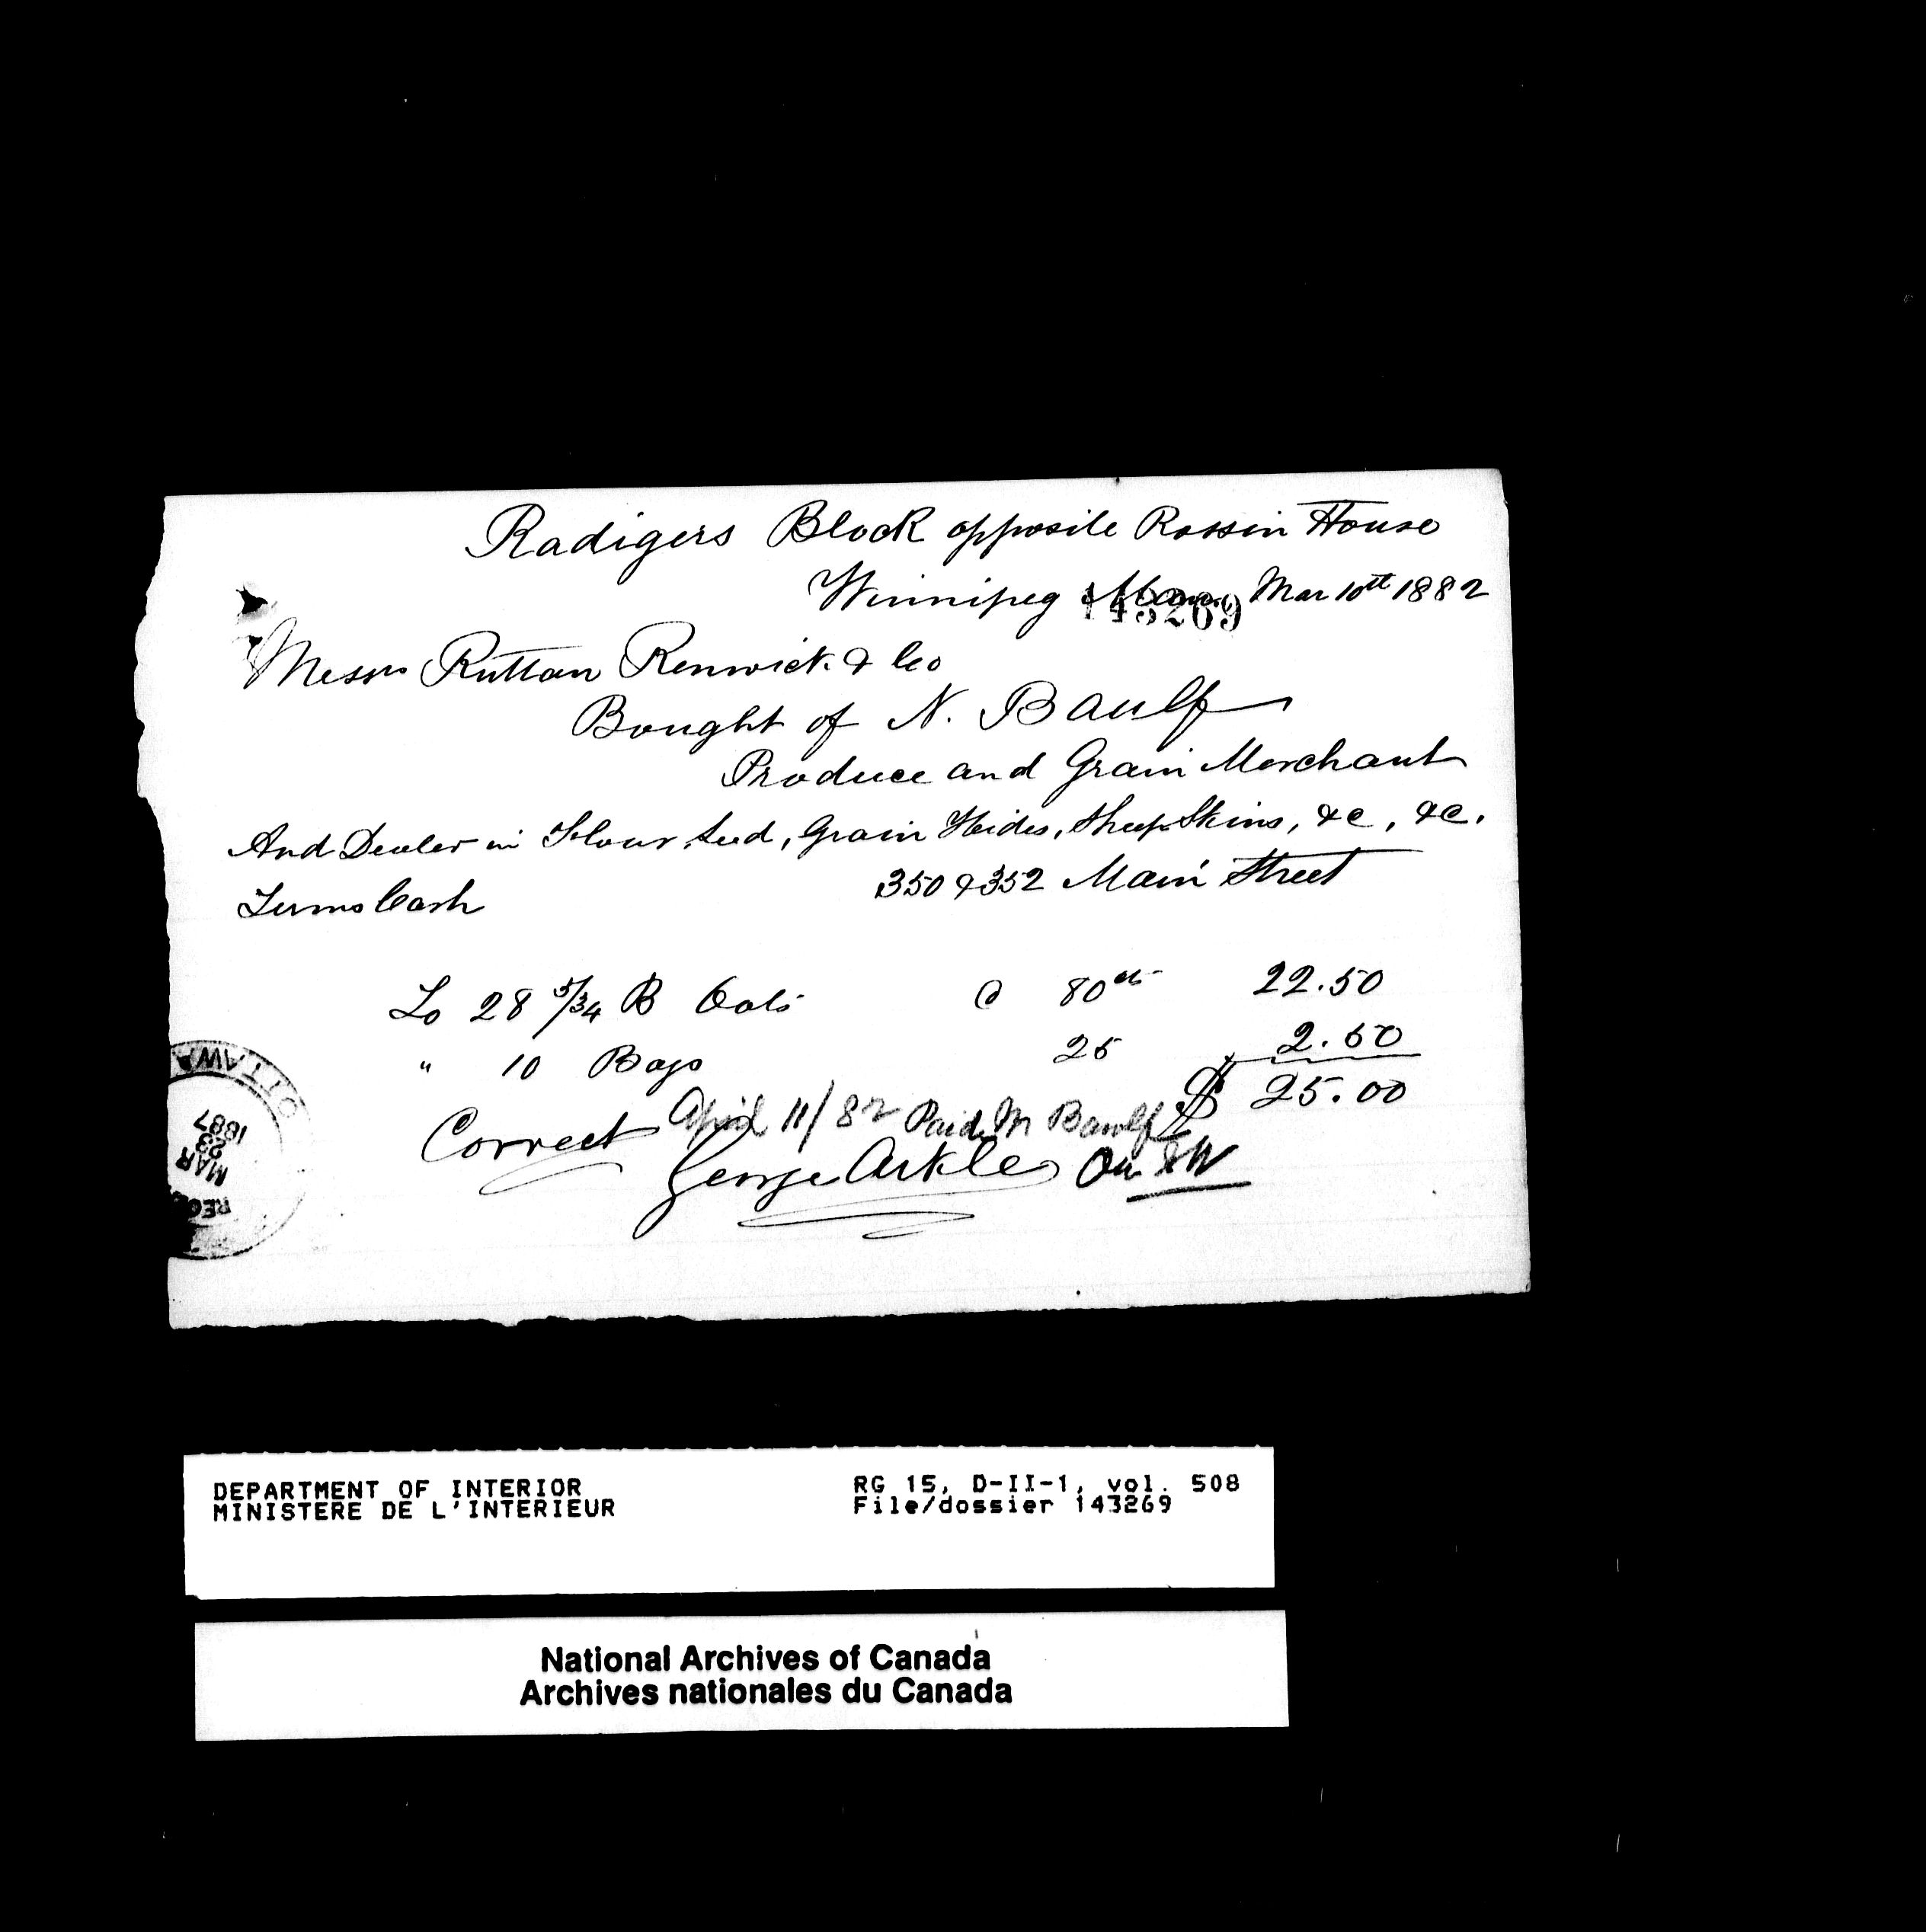 Radigers Block opposite Rossin House
Winnipeg Man. Mar 10th 1882
143269
Messrs Ruttan Renwick & Co
Bought of N. Baulf
Produce and Grain Merchant
And Dealer in Flour, feed, Grain Hides, Sheep Skins, &c, &c.
Terms Cash 350 & 352 Main Street
To 28 5/34 B Oats @ 80cts 22.50
" 10 Bags 25 2.50
$ 25.00
April 11/82 Paid N Baulf
Correct
George Arkle
OTTAWA
MAR
23
1887
DEPARTMENT OF INTERIOR RG 15, D-II-1, vol. 508
MINISTERE DE L'INTERIEUR File/dossier 143269
National Archives of Canada
Archives nationales du Canada